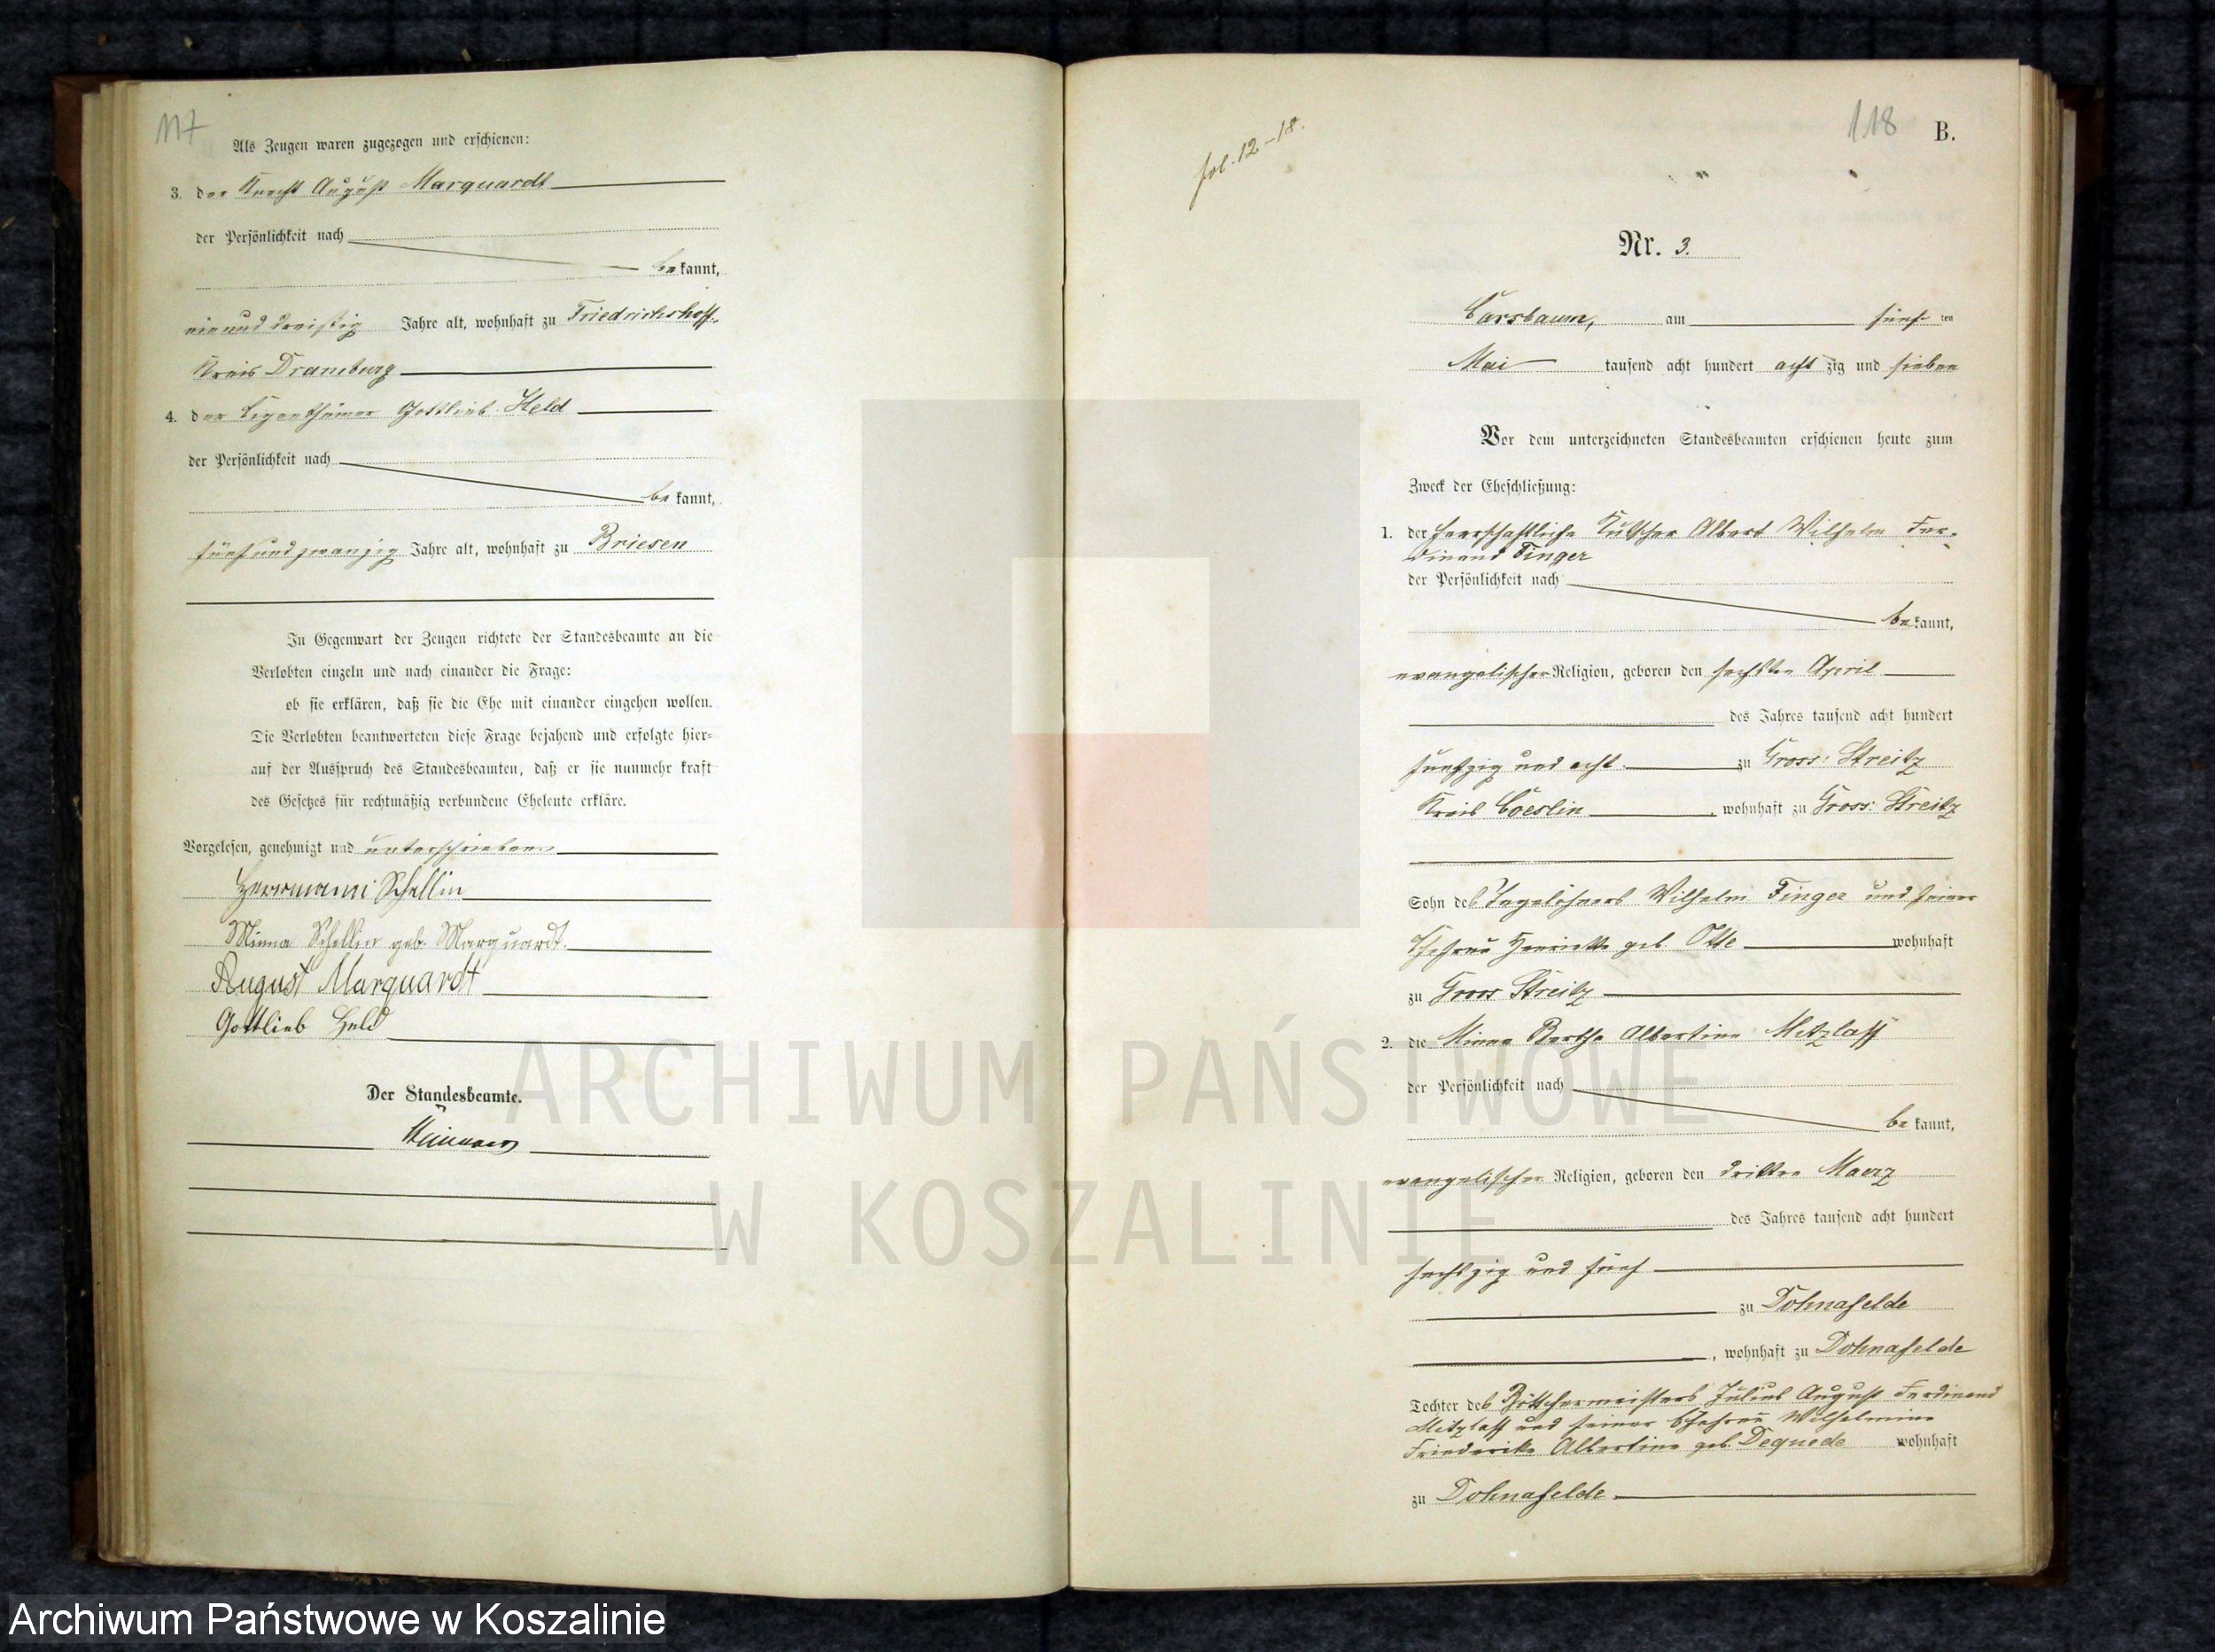 117
Als Zeugen waren zugezogen und erschienen:
3. der Knecht August Marquardt
der Persönlichkeit nach
bekannt,
ein und dreißig Jahre alt, wohnhaft zu Friedrichshoff
Kreis Dramburg
4. der Eigenthümer Gottlieb Held
der Persönlichkeit nach
be kannt,
fünf und zwanzig Jahre alt, wohnhaft zu Briesen
In Gegenwart der Zeugen richtete der Standesbeamte an die
Verlobten einzeln und nach einander die Frage:
ob sie erklären, daß sie die Ehe mit einander eingehen wollen.
Die Verlobten beantworteten diese Frage bejahend und erfolgte hier-
auf der Ausspruch des Standesbeamten, daß er sie nunmehr kraft
des Gesetzes für rechtmäßig verbundene Eheleute erkläre.
Vorgelesen, genehmigt und unterschrieben
Herrmann Schellin
Minna Schellin geb. Marquardt.
August Marquardt
Gottlieb Held
Der Standesbeamte.
fol. 12-18.
118 B.
Nr. 3.
Carsbaum, am fünf ten
Mai tausend acht hundert acht zig und sieben
Vor dem unterzeichneten Standesbeamten erschienen heute zum
Zweck der Eheschließung:
1. der herrschaftliche Kutscher Albert Wilhelm Fer-
dinand Finger
der Persönlichkeit nach
be kannt,
evangelischer Religion, geboren den sechsten April
des Jahres tausend acht hundert
fünfzig und acht zu Gross: Streitz
Kreis Coeslin, wohnhaft zu Gross: Streitz
Sohn des Tagelöhners Wilhelm Finger und seiner
Ehefrau Henriette geb. Otte wohnhaft
zu Gross Streitz
2. die Minna Bertha Albertine Mitzlaff
der Persönlichkeit nach
be kannt,
evangelischer Religion, geboren den dritten Maerz
des Jahres tausend acht hundert
sechszig und fünf
zu Dohnafelde
, wohnhaft zu Dohnafelde
Tochter des Böttchermeisters Julius August Ferdinand
Mitzlaff und seiner Ehefrau Wilhelmine
Friederike Albertine geb. Dequede wohnhaft
zu Dohnafelde
ARCHIWUM PAŃSTWOWE
W KOSZALINIE
Archiwum Państwowe w Koszalinie